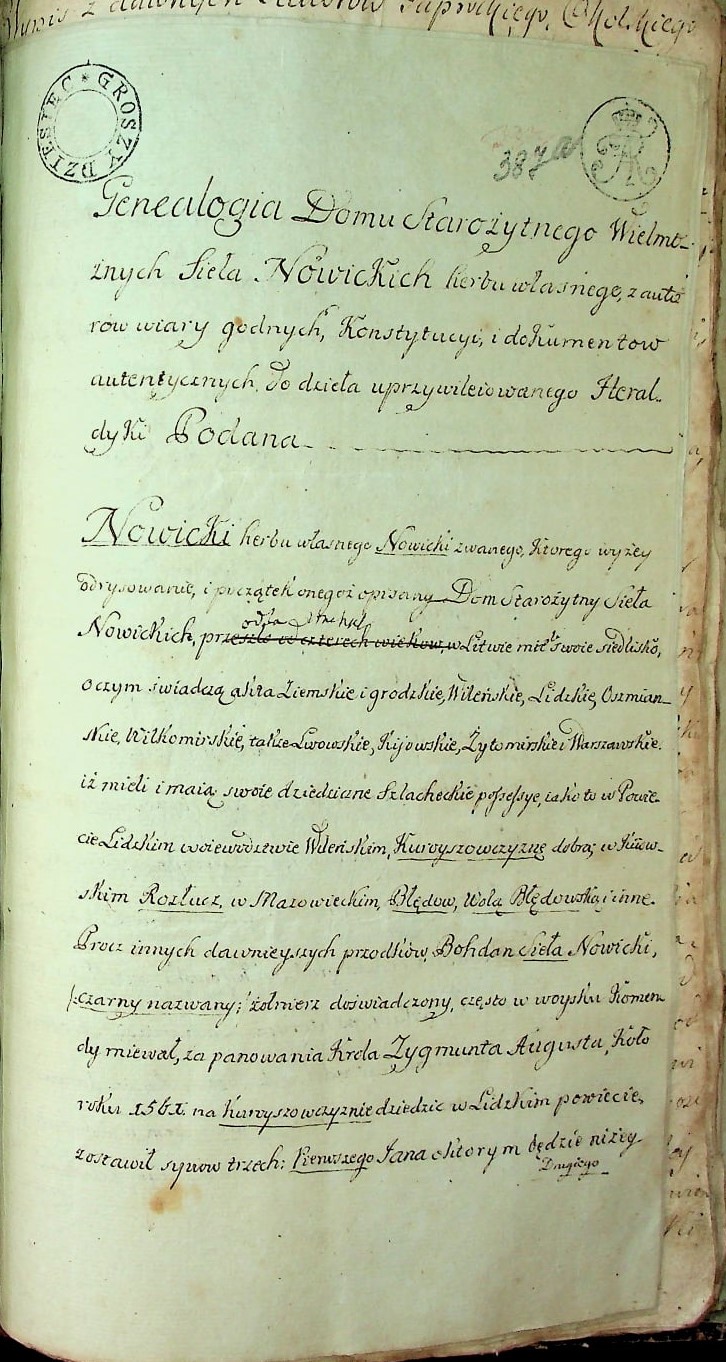 Wypis z dawnych Autorow Paprockiego, Okolskiego
GROSZY DZIESIĘC
387 a
Genealogia Domu Starożytnego Wielmo-
żnych Sieła Nowickich herbu własnego, z auto
row wiary godnych, Konstytucyi, i dokumentow
autentycznych do dzieła uprzywileiowanego Heral-
dyki Podana
Nowicki herbu własnego Nowicki zwanego, ktorego wyżey
odrysowanie, i początek onegoż opisany Dom Starożytny Sieła
Nowickich, przeszło od czterech wiekow, w Litwie miał swoie siedlisko,
o czym świadczą akta Ziemskie i grodzkie, Wileńskie, Lidzkie, Oszmian-
skie, Wiłkomirskie, także Lwowskie, Kijowskie, Żytomirskie i Warszawskie.
iż mieli i maią swoie dziedziczne Szlacheckie possessye, iako to w Powie-
cie Lidzkim woiewodztwie Wileńskim, Kurvyszowczyznę dobra; w Kiiow-
skim Rozłucz, w Mazowieckim, Błędow, Wolą Błędowską i inne.
Procz innych dawnieyszych przodków, Bohdan Sieła Nowicki,
czarny nazwany; żołnierz doświadczony, często w woysku Komen-
dy miewał, za panowania Krola Zygmunta Augusta, Koło
roku 1561. na Kurvyszowczyznie dziedzic w Lidzkim powiecie,
zostawił synow trzech: Pierwszego Jana o ktorym będzie niżey
Drugiego